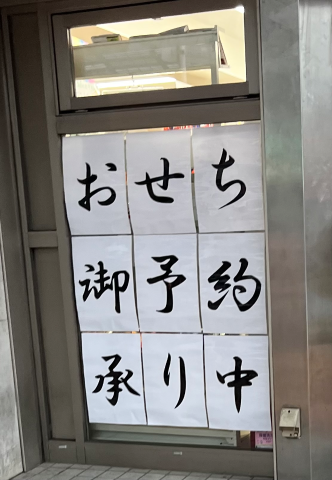 おせち
御予約
承り中